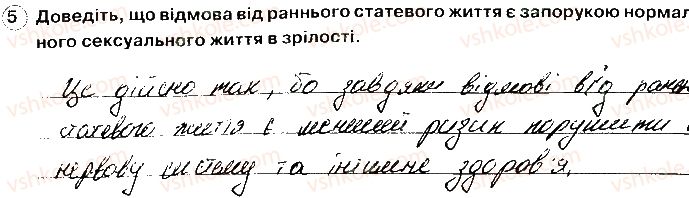 5 Доведіть, що відмова від раннього статевого життя є запорукою нормал
ного сексуального життя в зрілості.
Це дійсно так, бо завдяки відмові від ранн
статевого життя є менший ризик порушити
нервову систему та інтимне здоров'я.